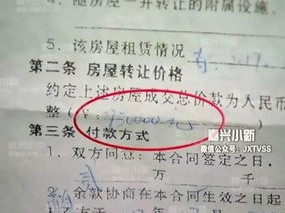 随房屋一并转让的附属设施
5. 该房屋租赁情况
第二条 房屋转让价格
约定上述房屋成交总价款为人民币
整(¥:950000元)
第三条 付款方式
嘉兴小新
微信公众号:JXTVSS
1. 双方同意:本合同签定之日,
万 千
2. 余款协商在本合同生效之日起